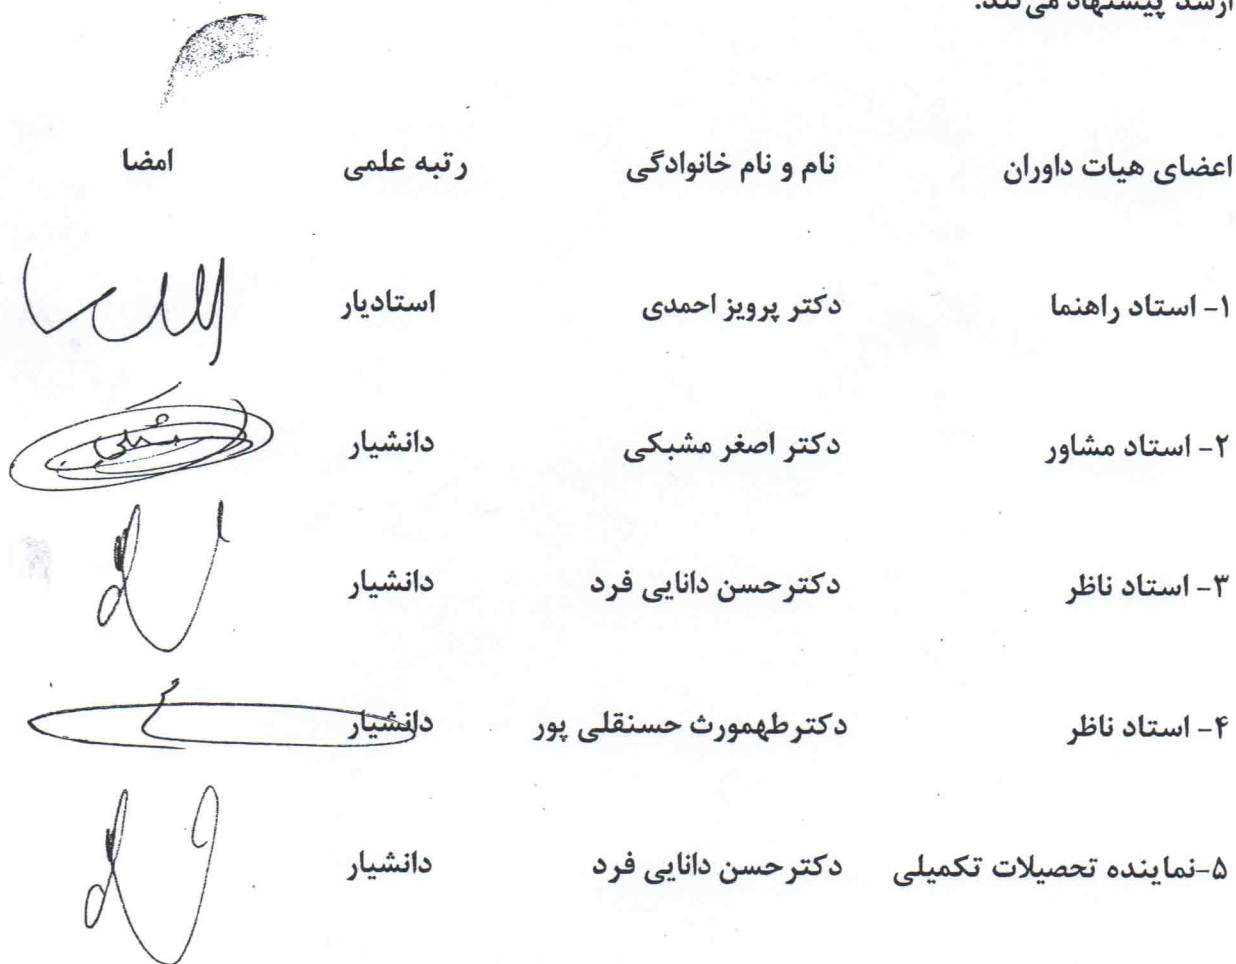 ارشد پیشنهاد می‌کند.
اعضای هیات داوران نام و نام خانوادگی رتبه علمی امضا
۱- استاد راهنما دکتر پرویز احمدی استادیار
۲- استاد مشاور دکتر اصغر مشبکی دانشیار
۳- استاد ناظر دکترحسن دانایی فرد دانشیار
۴- استاد ناظر دکترطهمورث حسنقلی پور دانشیار
۵-نماینده تحصیلات تکمیلی دکترحسن دانایی فرد دانشیار